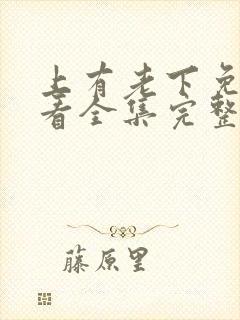 上有老下免
看全集完整
藤原里